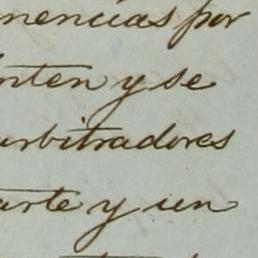 nencias por
inten y se
arbitradores
arte y un